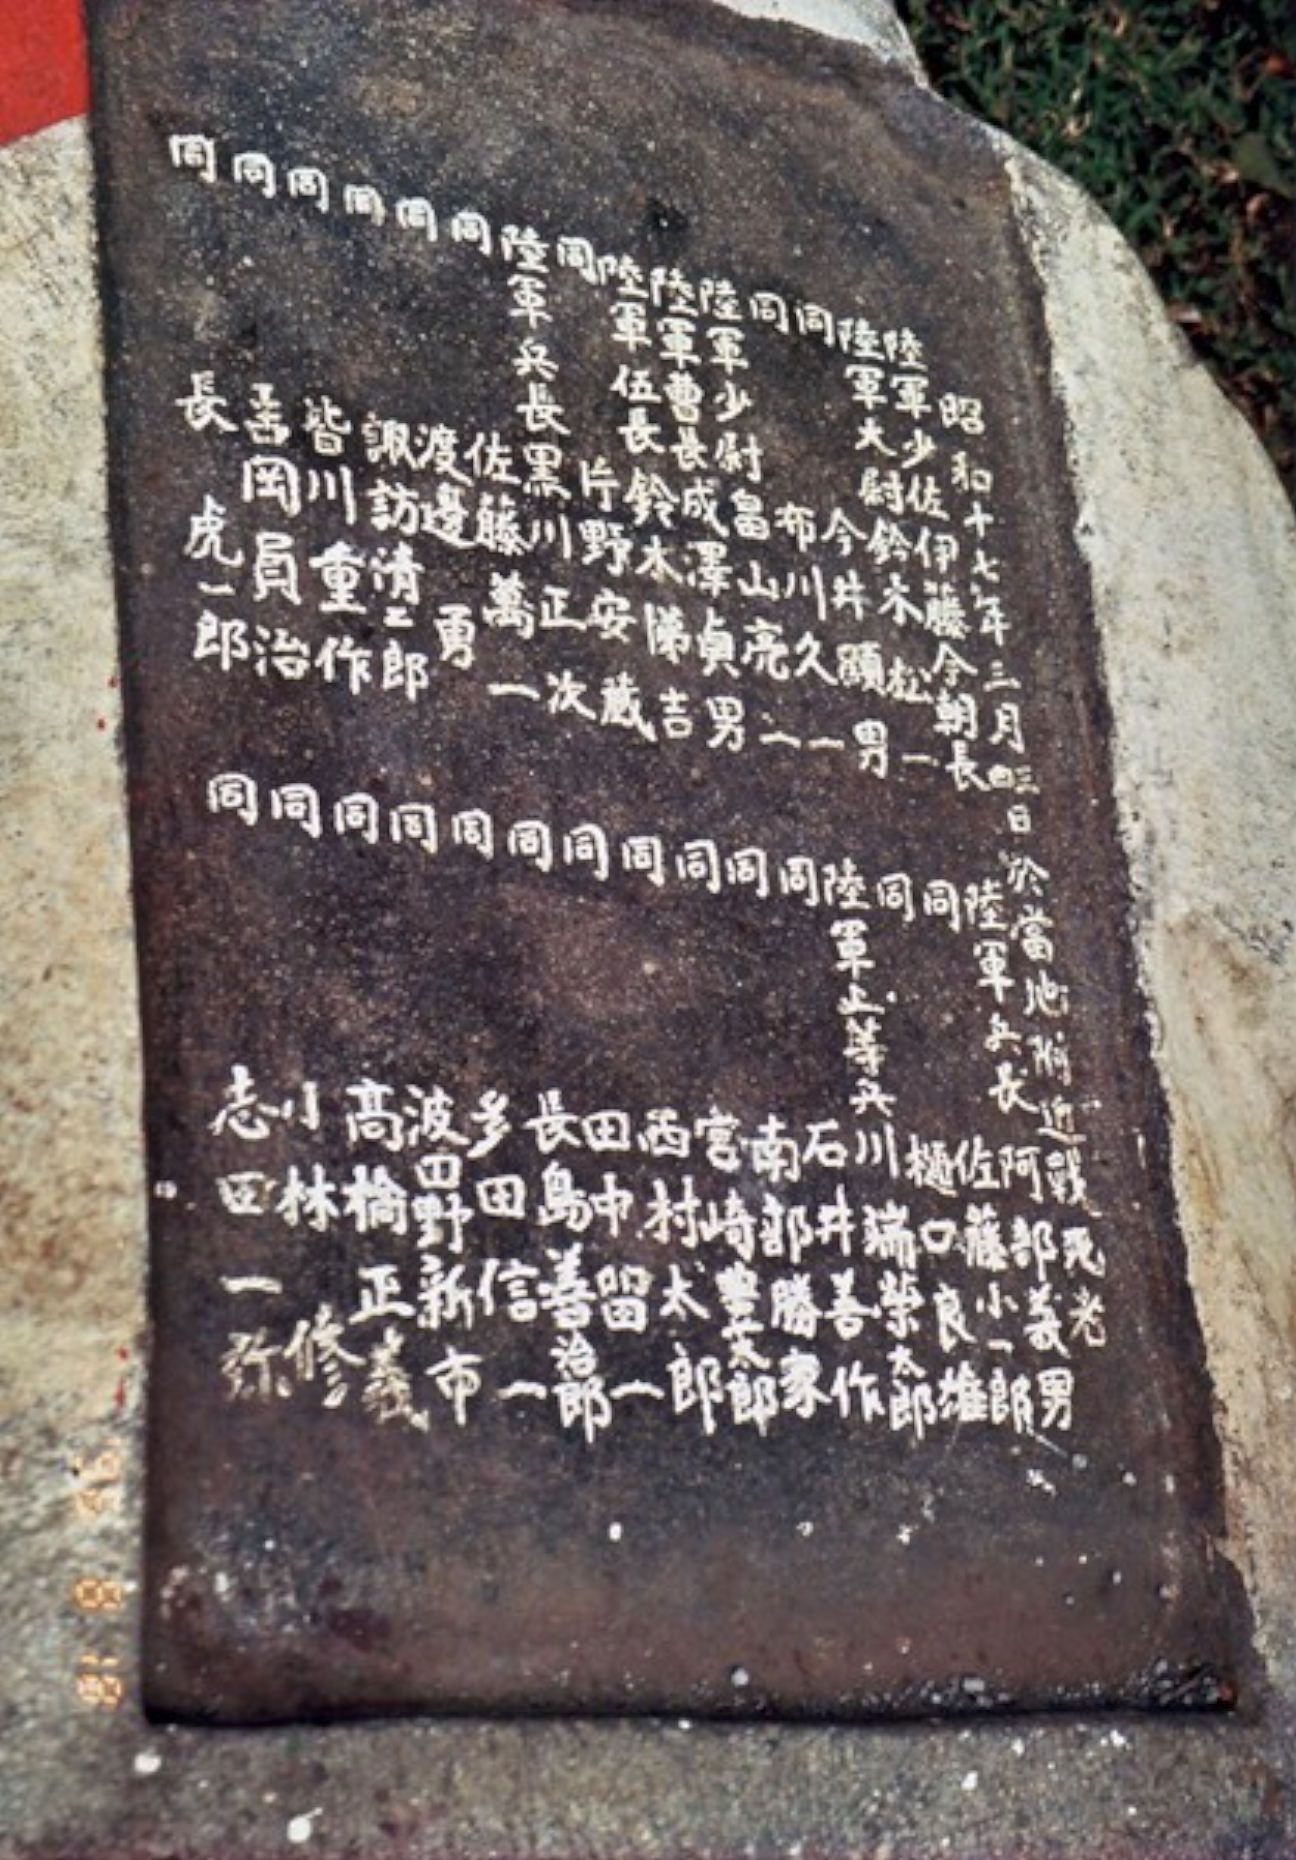 昭和十七年三月三四日於當地附近戰死者
陸軍少佐伊藤今朝長
陸軍大尉鈴木松一
同今井顕男
同布川久一
陸軍少尉畠山亮一
陸軍曹長成澤貞男
陸軍伍長鈴木悌吉
同片野安蔵
陸軍兵長黒川正次
同佐藤萬一
同渡邊勇
同諏訪清二郎
同皆川重作
同善岡員治
同長虎一郎
陸軍兵長阿部義男
同佐藤小一郎
同樋口良雄
陸軍上等兵川端榮太郎
同石井善作
同南部勝家
同宮崎豊太郎
同西村太郎
同田中留一
同長島善治郎
同多田信一
同波田野新市
同髙橋正義
同小林修
同志田一弥